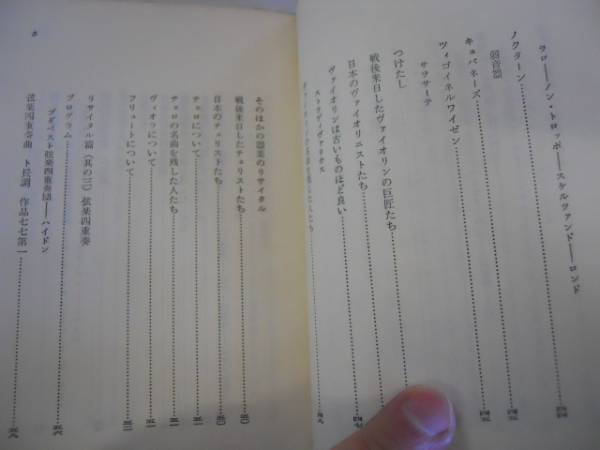 ラロ——ノン・トロッポ——スケルツァンド——ロンド……四四
ノクターン……四五
弱音器……四五
キュバネーズ……四五
ツィゴイネルワイゼン
サラサーテ
つけたし
戦後来日したヴァイオリンの巨匠たち
日本のヴァイオリニストたち……四七
ヴァイオリンは古いものほど良い
ストラディヴァリウス……四九
そのほかの器楽のリサイタル
戦後来日したチェリストたち……五〇
日本のチェリストたち……五〇
チェロについて……五一
チェロの名曲を残した人たち……五一
ヴィオラについて……五二
フリュートについて……五三
リサイタル篇（其の三）弦楽四重奏
プログラム……五六
ブダペスト弦楽四重奏団——ハイドン
弦楽四重奏曲　ト長調　作品七七第一……五九